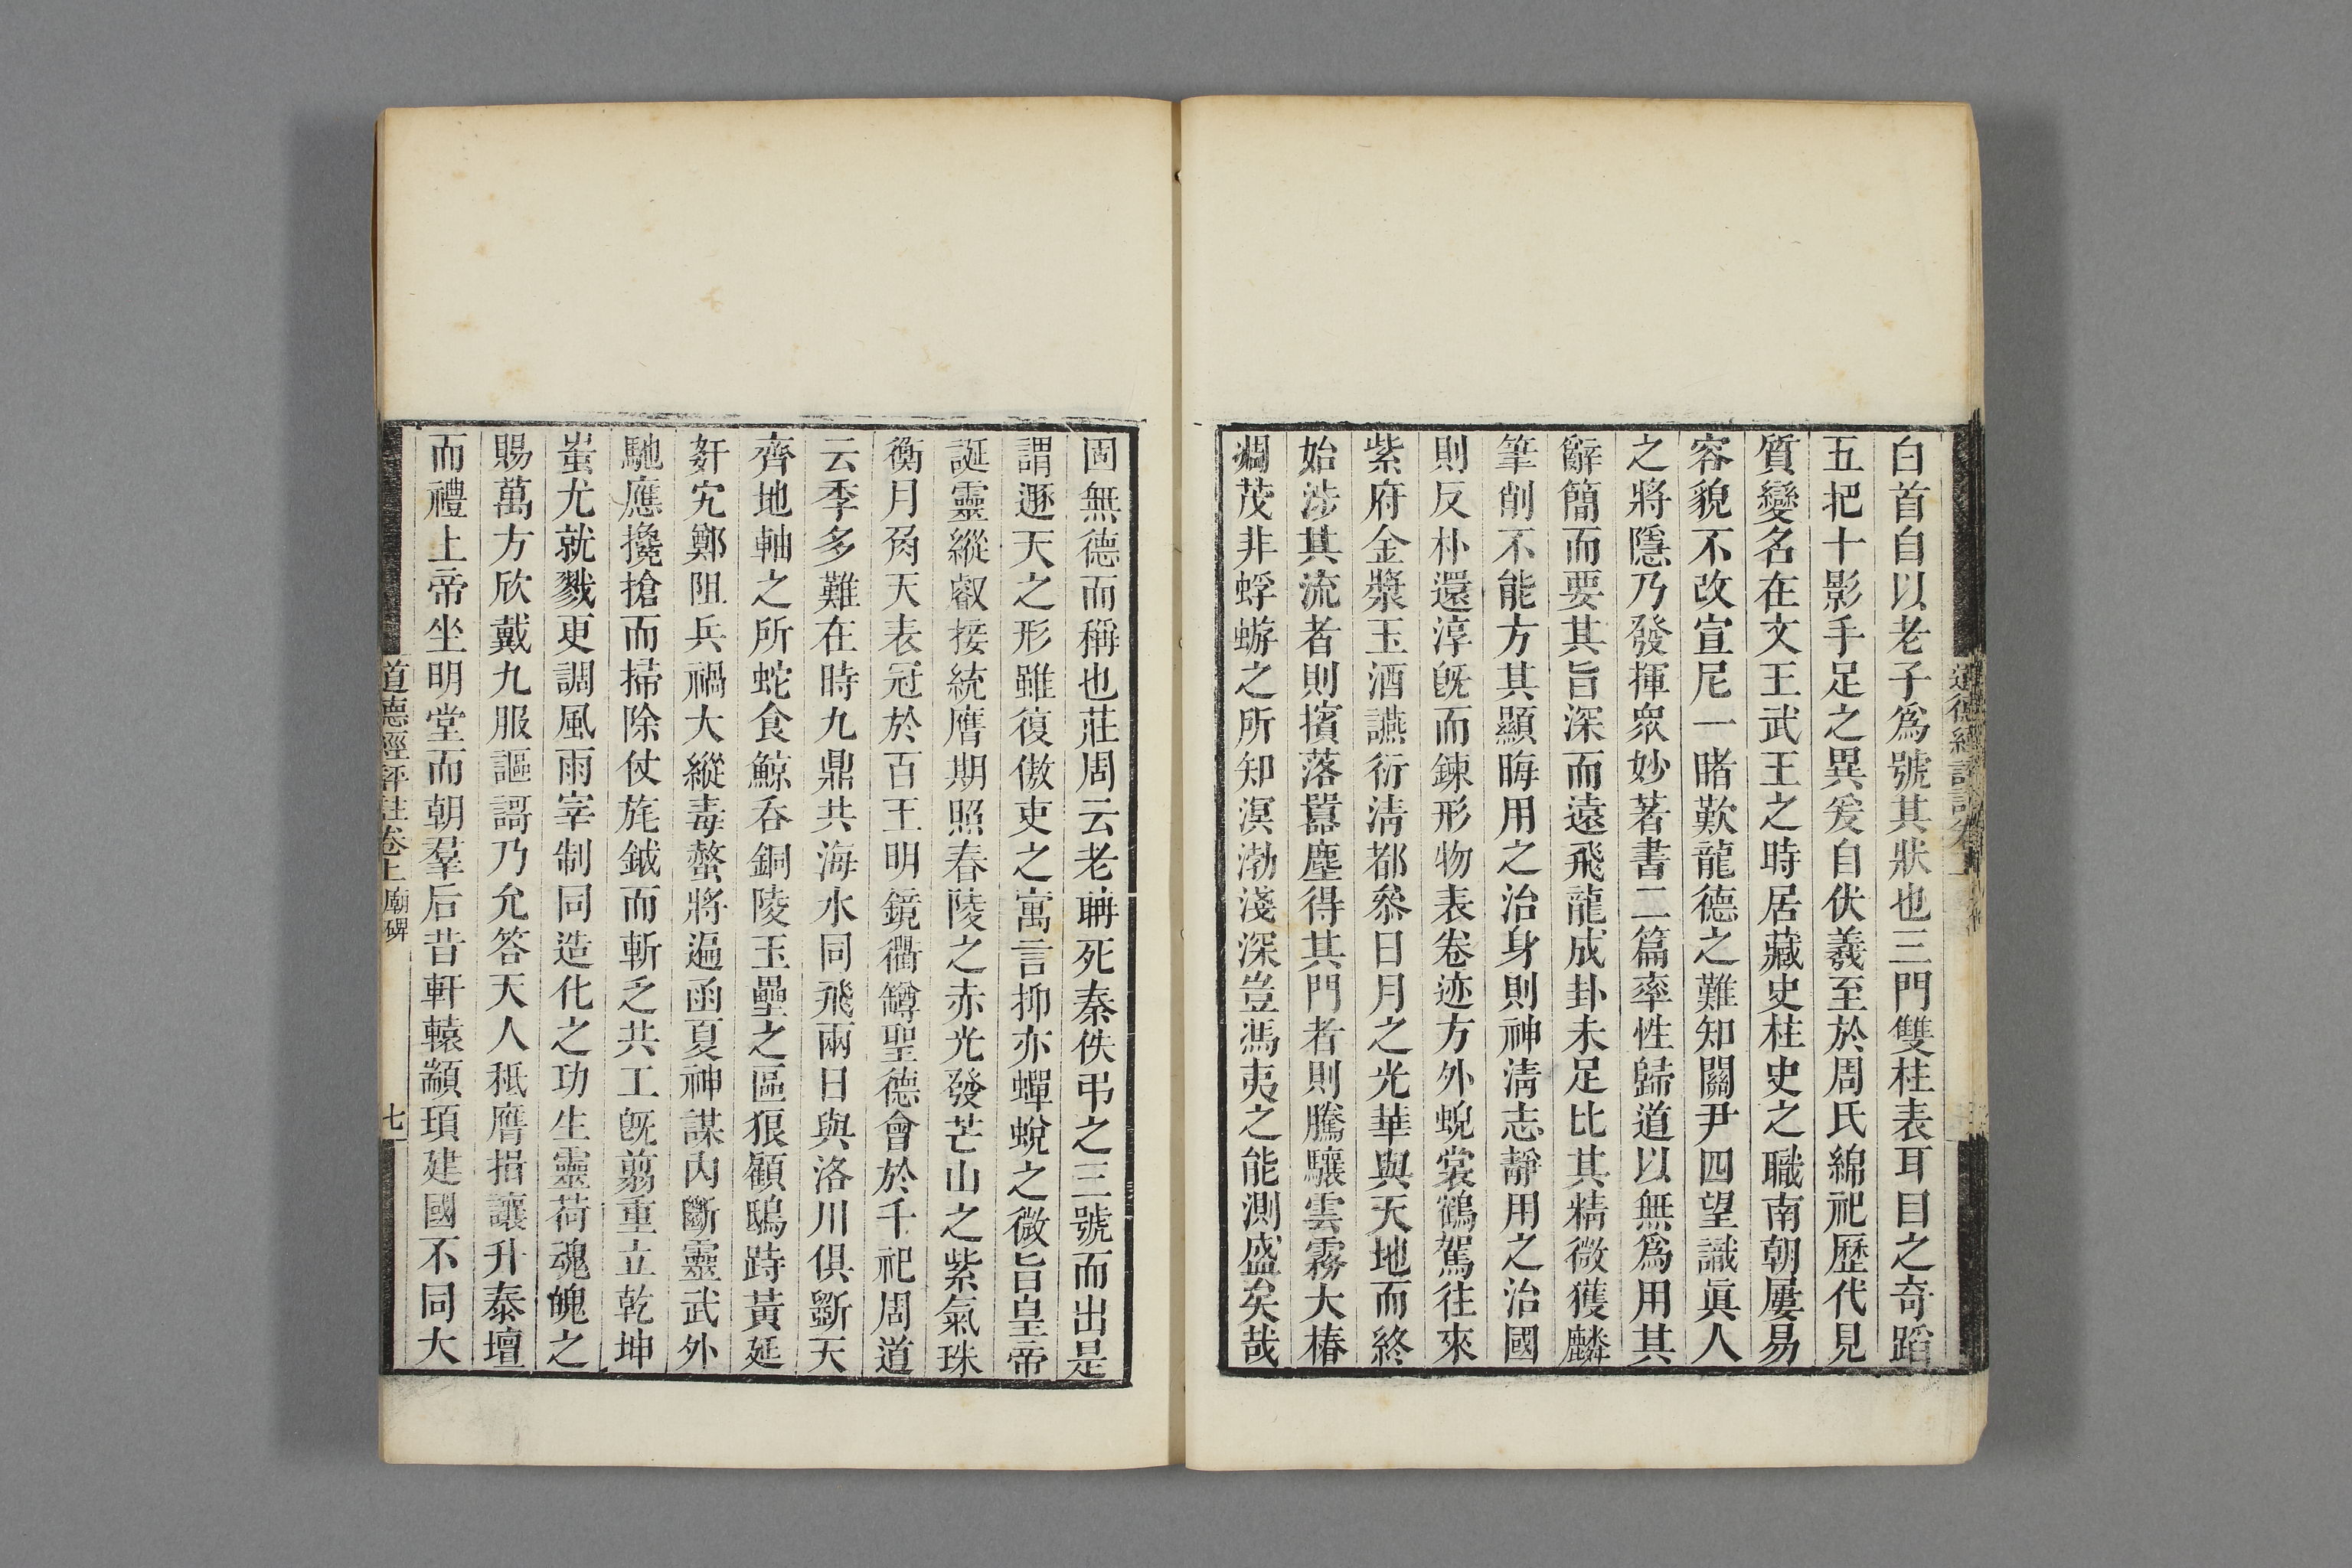 白首自以老子爲號其狀也三門雙柱表耳目之奇蹈
五把十影手足之異爰自伏羲至於周氏綿祀歷代見
質變名在文王武王之時居藏史柱史之職南朝屢易
容貌不改宣尼一睹歎龍德之難知關尹四望識眞人
之將隱乃發揮眾妙著書二篇率性歸道以無爲用其
辭簡而要其旨深而遠飛龍成卦未足比其精微獲麟
筆削不能方其顯晦用之治身則神淸志靜用之治國
則反朴還淳旣而鍊形物表卷迹方外蜺裳鶴駕往來
紫府金漿玉酒讌衍淸都叅日月之光華與天地而終
始涉其流者則擯落囂塵得其門者則騰驤雲霧大椿
凋茂非蜉蝣之所知溟渤淺深豈馮夷之能測盛矣哉
固無德而稱也莊周云老聃死秦佚弔之三號而出是
謂遯天之形雖復傲吏之寓言抑亦蟬蛻之微旨皇帝
誕靈縱叡接統膺期照春陵之赤光發芒山之紫氣珠
衡月角天表冠於百王明鏡衢罇聖德會於千祀周道
云季多難在時九鼎共海水同飛兩日與洛川俱鬬天
齊地軸之所蛇食鯨呑銅陵玉壘之區狼顧鴟跱黃延
姧宄鄭阻兵禍大縱毒螫將遍函夏神謀內斷靈武外
馳應攙搶而掃除仗旄鉞而斬乏共工旣翦重立乾坤
蚩尤就戮更調風雨宰制同造化之功生靈荷魂魄之
賜萬方欣戴九服謳謌乃允答天人祗膺揖讓升泰壇
而禮上帝坐明堂而朝羣后昔軒轅顓頊建國不同大
道德經評註卷上 廟碑
七